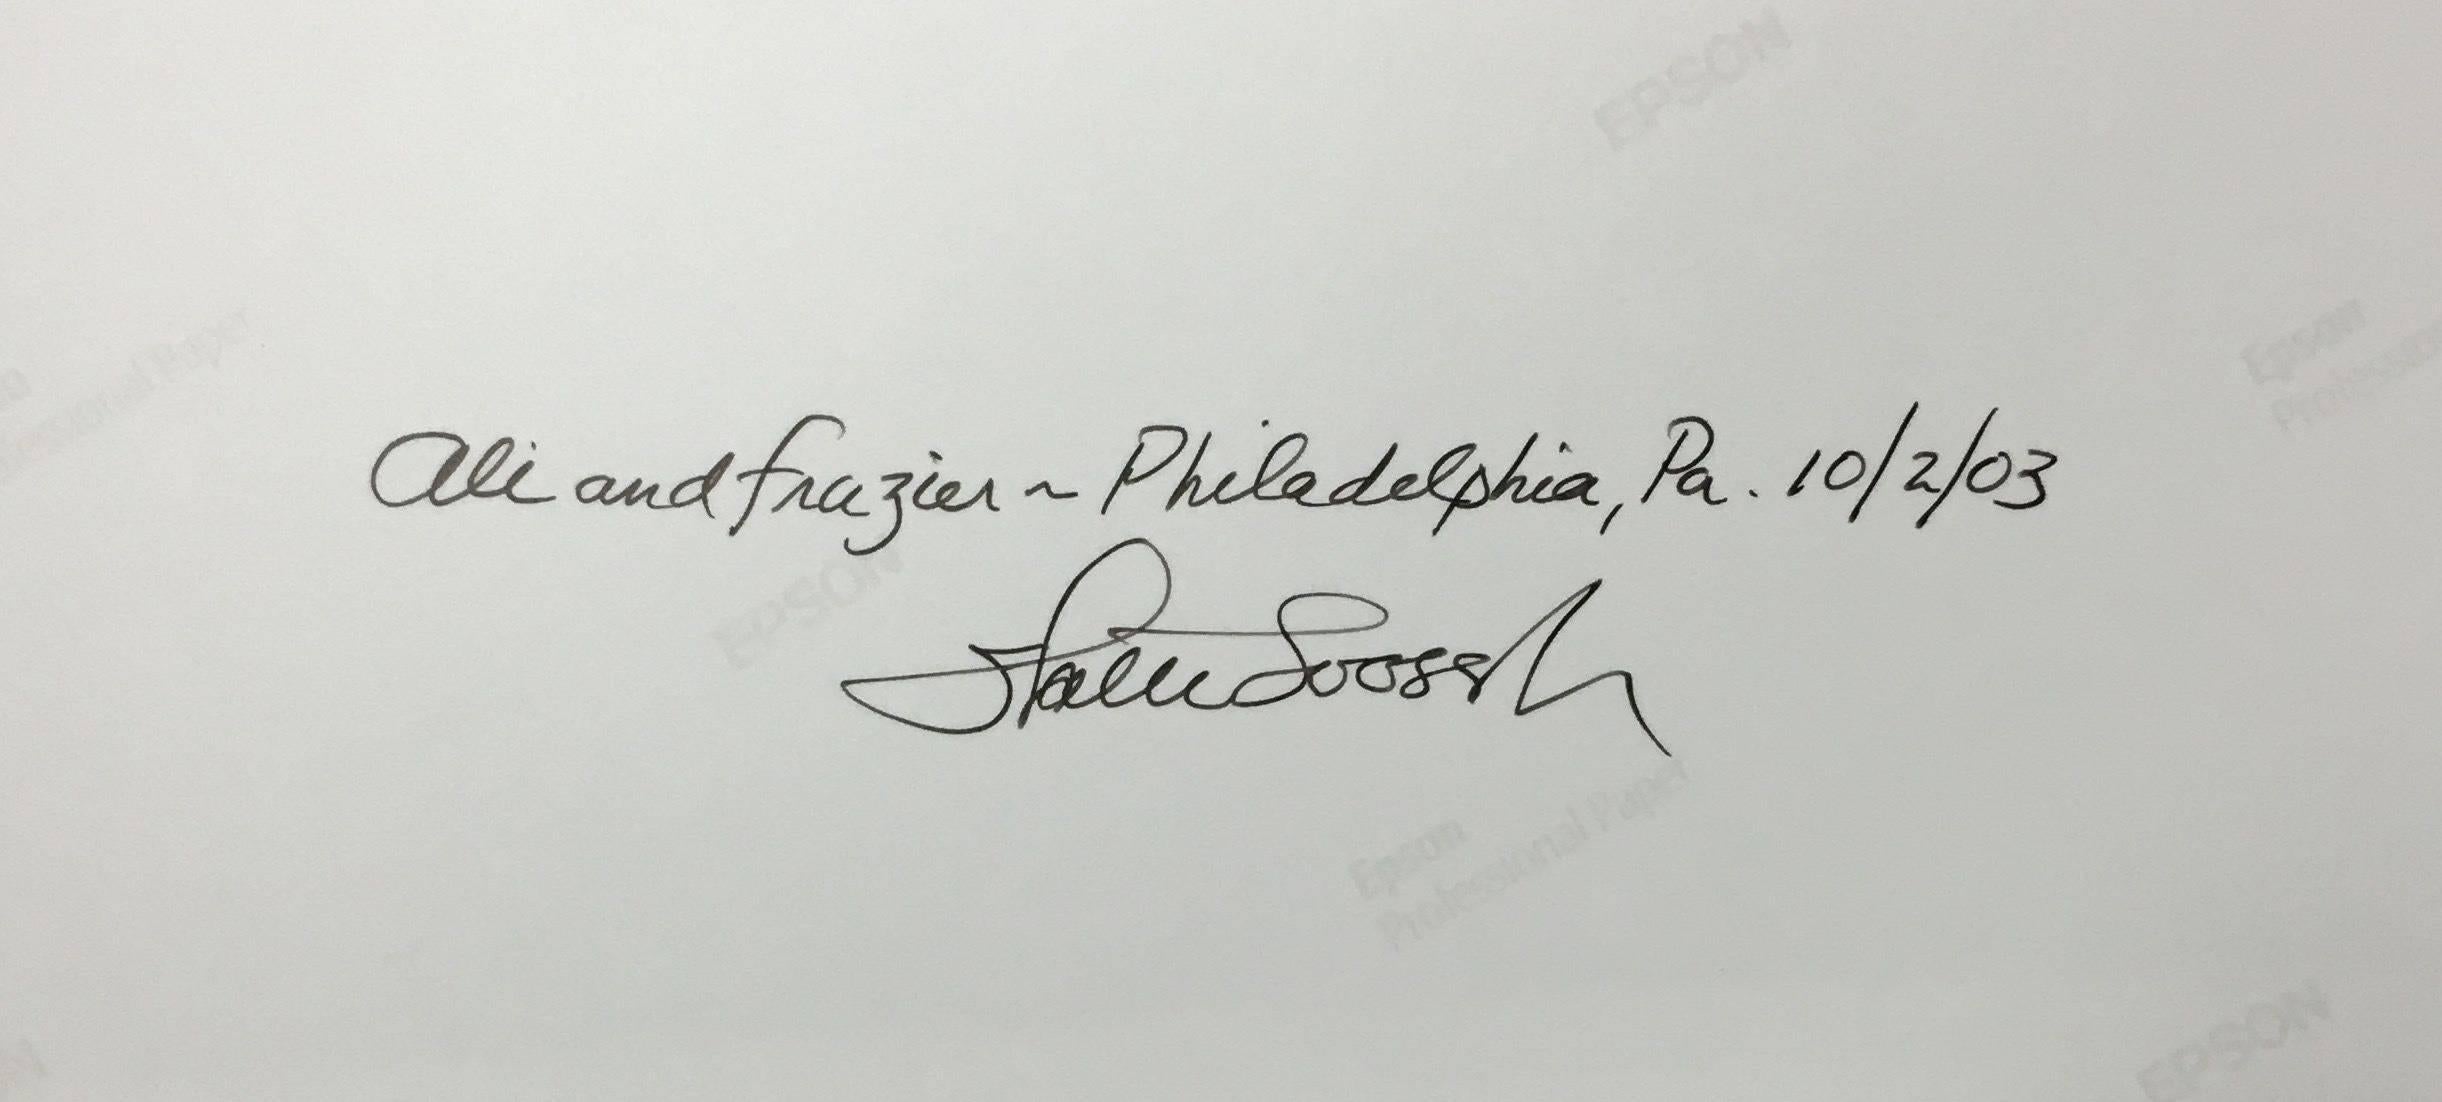 EPSON
Professional Paper
Epson
Professional
Ali and Frazier ~ Philadelphia, Pa. 10/2/03
EPSON
Walter Iooss Jr
Epson
Professional Paper
EPSON